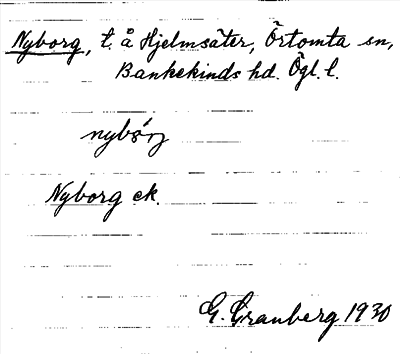 Nyborg, t. å Hjelmsäter, Örtomta sn,
Bankekinds hd. Ögl. l.
Nyborg ek.
G. Granberg 1930